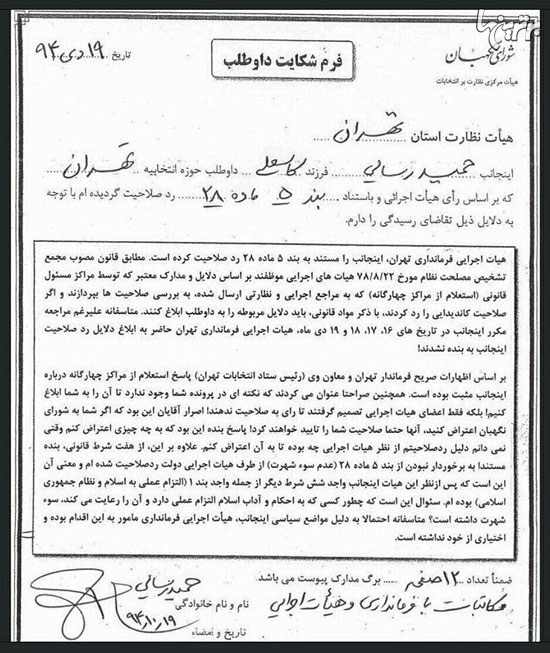 برترین ها
شورای نگهبان
هیأت مرکزی نظارت بر انتخابات
فرم شکایت داوطلب
تاریخ ۱۹ دی ۹۴
هیأت نظارت استان تهران
اینجانب حمید رسائی فرزند داوطلب حوزه انتخابیه تهران
که بر اساس رأی هیأت اجرائی و باستناد بند ۵ ماده ۲۸ رد صلاحیت گردیده ام با توجه
به دلایل ذیل تقاضای رسیدگی را دارم.
هیات اجرایی فرمانداری تهران، اینجانب را مستند به بند ۵ ماده ۲۸ رد صلاحیت کرده است. مطابق قانون مصوب مجمع
تشخیص مصلحت نظام مورخ ۷۸/۸/۲۲ هیات های اجرایی موظفند بر اساس دلایل و مدارک معتبر که توسط مراکز مسئول
قانونی (استعلام از مراکز چهارگانه) که به مراجع اجرایی و نظارتی ارسال شده، به بررسی صلاحیت ها بپردازند و اگر
صلاحیت کاندیدایی را رد کردند، با ذکر مواد قانونی، باید دلایل مربوطه را به داوطلب ابلاغ کنند. متاسفانه علیرغم مراجعه
مکرر اینجانب در تاریخ های ۱۶، ۱۷، ۱۸ و ۱۹ دی ماه، هیات اجرایی فرمانداری تهران حاضر به ابلاغ دلایل رد صلاحیت
اینجانب به بنده نشدند!
بر اساس اظهارات صریح فرماندار تهران و معاون وی (رئیس ستاد انتخابات تهران) پاسخ استعلام از مراکز چهارگانه درباره
اینجانب مثبت بوده است. همچنین صراحتا عنوان می کردند که نکته ای در پرونده شما وجود ندارد تا آن را به شما ابلاغ
کنیم! بلکه فقط اعضای هیات اجرایی تصمیم گرفتند تا رای به صلاحیت ندهند! اصرار آقایان این بود که اگر شما به شورای
نگهبان اعتراض کنید، آنها حتما صلاحیت شما را تایید خواهند کرد! پاسخ بنده این بود که به چه چیزی اعتراض کنم وقتی
نمی دانم دلیل ردصلاحیتم از نظر هیات اجرایی چه بوده تا به آن اعتراض کنم. علاوه بر این، از هفت شرط قانونی، بنده
مستندا به برخوردار نبودن از بند ۵ ماده ۲۸ (عدم سوء شهرت) از طرف هیات اجرایی دولت ردصلاحیت شده ام و معنی آن
این است که پس ازنظر این هیات اینجانب واجد شش شرط دیگر از جمله واجد بند ۱ (التزام عملی به اسلام و نظام جمهوری
اسلامی) بوده ام. سئوال این است که چطور کسی که به احکام و آداب اسلام التزام عملی دارد و آن را رعایت می کند، سوء
شهرت داشته است؟ متاسفانه احتمالا به دلیل مواضع سیاسی اینجانب، هیأت اجرایی فرمانداری مامور به این اقدام بوده و
اختیاری از خود نداشته است.
ضمناً تعداد ۱۲ صفحه برگ مدارک پیوست می باشد.
مکاتبات با فرمانداری و هیأت اجرایی
حمید رسائی
نام و نام خانوادگی
۹۴،۱۰،۱۹
تاریخ و امضاء